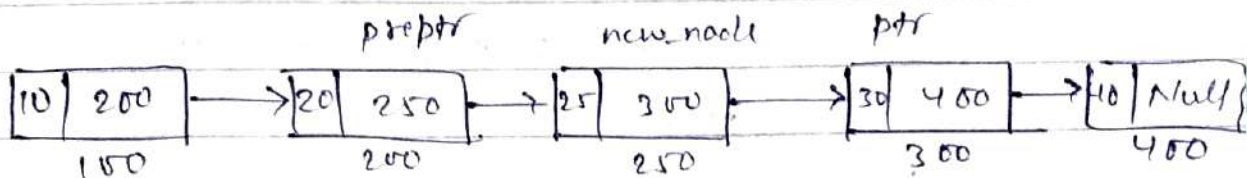 preptr new_node ptr
10 200 20 250 25 300 30 400 40 Null
100 200 250 300 400